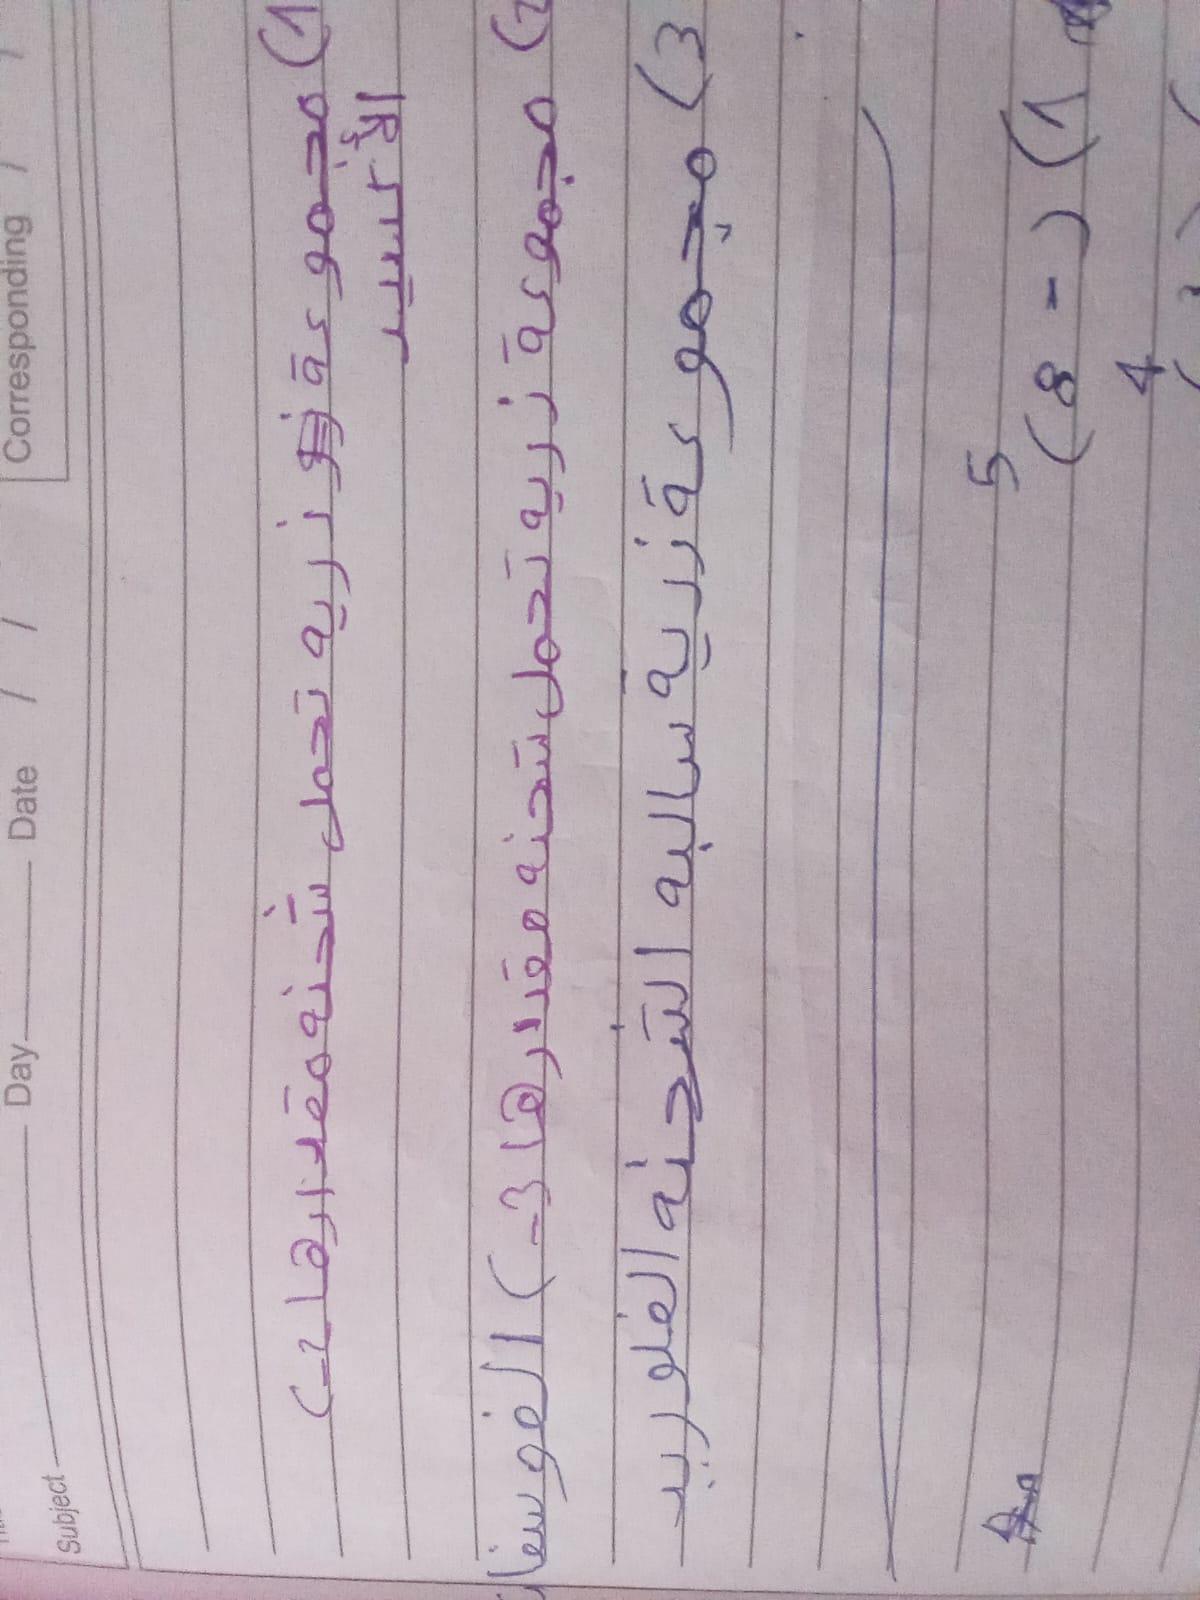 Subject Day Date / /
Corresponding / /
1) مجموعة زريه تحمل شحنه مقدارها 2-)
الأكسيد
2) مجموعة زريه تحمل شحنه مقدارها 3-) الفوسفات
3) مجموعة زرية سالبه الشحنه الفلوريد
1) (8-)
5
4